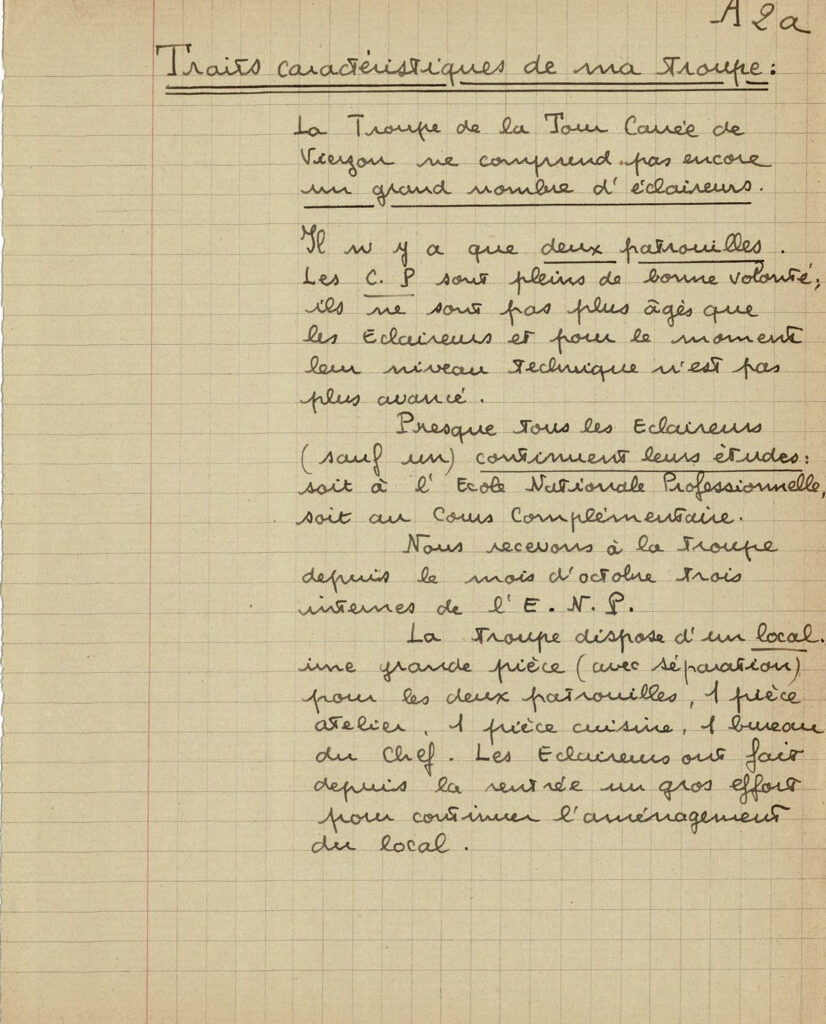 A2a
Traits caractéristiques de ma troupe :
La Troupe de la Tour Carrée de
Vierzon ne comprend pas encore
un grand nombre d'éclaireurs.
Il n'y a que deux patrouilles.
Les C. P sont pleins de bonne volonté ;
ils ne sont pas plus âgés que
les Eclaireurs et pour le moment
leur niveau technique n'est pas
plus avancé.
Presque tous les Eclaireurs
(sauf un) continuent leurs études :
soit à l'Ecole Nationale Professionnelle,
soit au Cours Complémentaire.
Nous recevons à la troupe
depuis le mois d'octobre trois
internes de l'E. N. P.
La troupe dispose d'un local.
une grande pièce (avec séparation)
pour les deux patrouilles, 1 pièce
atelier, 1 pièce cuisine, 1 bureau
du Chef. Les Eclaireurs ont fait
depuis la rentrée un gros effort
pour continuer l'aménagement
du local.